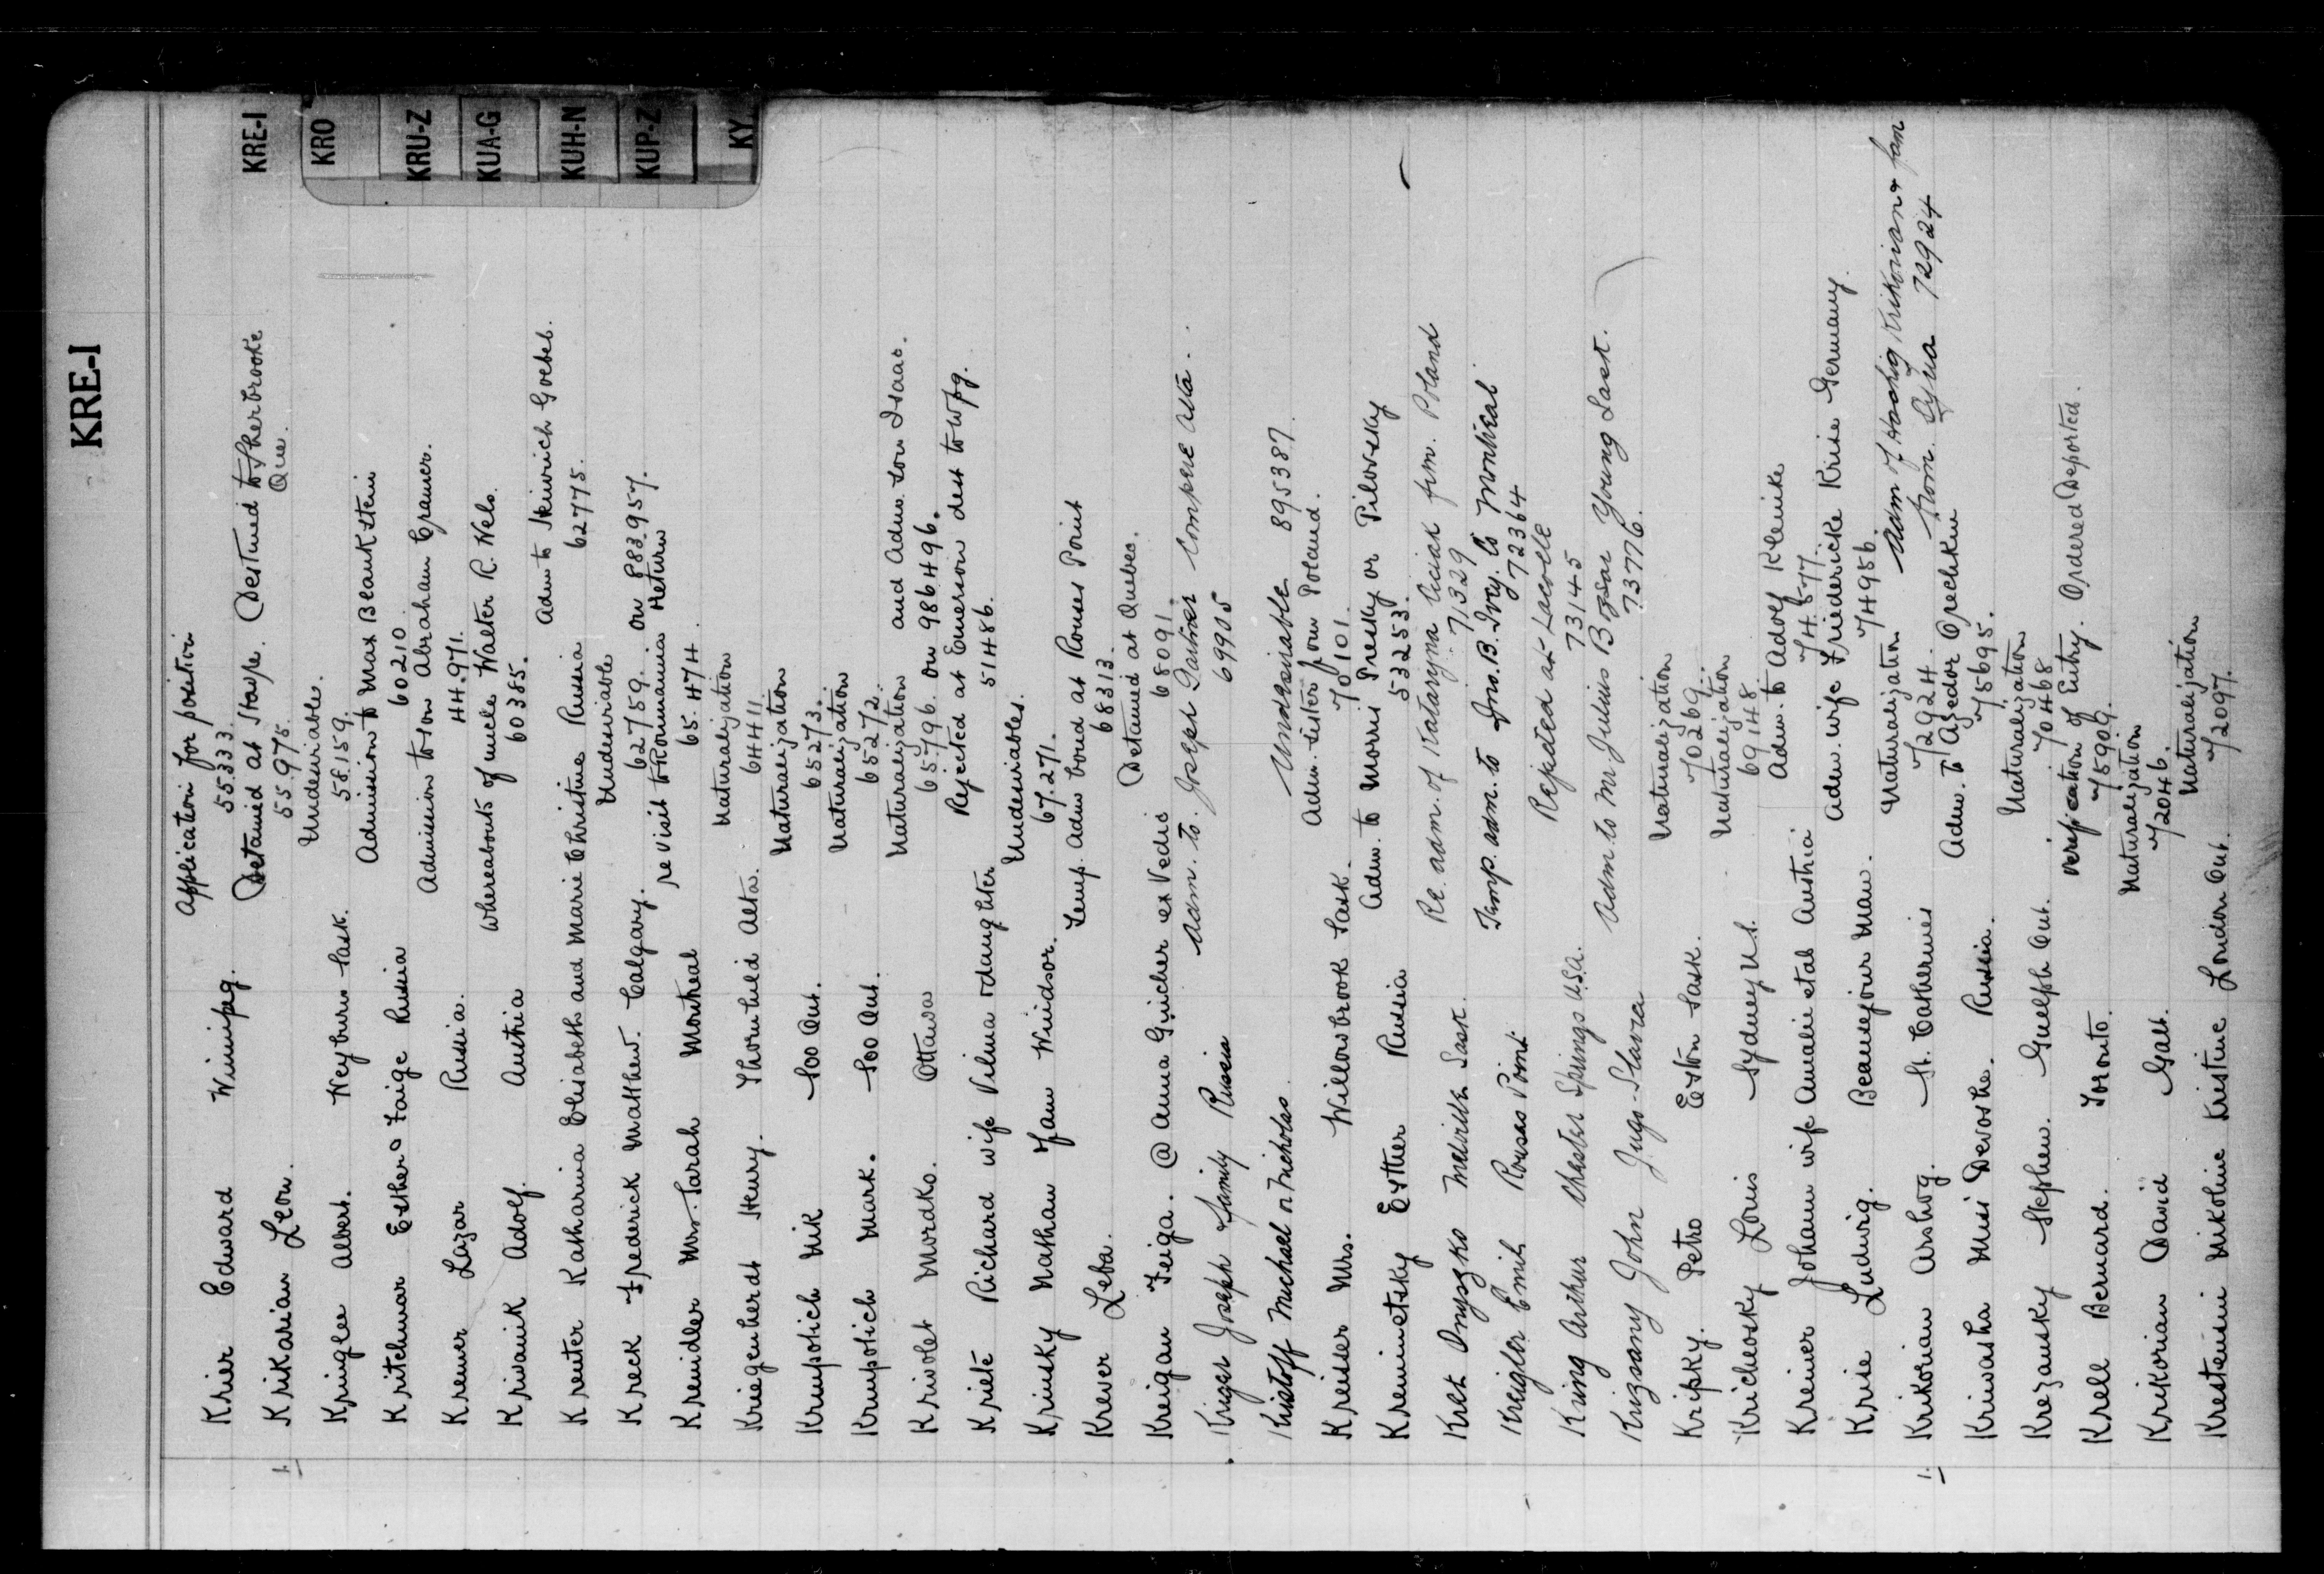 KRE-I
KRE-I
KRO
KRU-Z
KUA-G
KUH-N
KUP-Z
KY
Application for position
Krier Edward Winnipeg. 55333.
Detained at Stanst. Destined to Sherbrooke
Que.
Krikarian Leon. 55.975.
Undesirable.
Kringler Albert. Weyburn Sask. 58.159.
Admission to Max Blankstein
Kritchmar Esther & Faige Russia 60210
Admission to son Abraham Cramer.
Kremer Lazar Russia. 44.971.
Whereabouts of uncle Walter R. Wels.
Krivanik Adolf. Austria 60385.
Adm to Heinrich Goebel.
Kreuter Katharina Elisabeth and Marie Christine Russia 62775.
Undesirable
Kreck Frederick Matthew. Calgary. 62759. on 883957.
re visit to Roumania Return
Kreindler Mrs. Sarah Montreal 65.474.
Naturalization
Kriegenherdt Henry. Thornhild Alta. 64411.
Naturalization
Krmpotich Mik Soo Ont. 65273.
Naturalization
Krmpotich Mark. Soo Ont. 65272.
Naturalization and Adm. son Isaac.
Krivolet Mordko. Ottawa 65796. on 986496.
Rejected at Emerson dest to Wpg.
Kriete Richard wife Vilma & daughter 51486.
Undesirables.
Krinsky Nathan Fam Windsor. 67.271.
Temp. Adm bond at Rouses Point
Krever Leba. 68313.
Detained at Quebec.
Kreigan Feiga. @ Anna Guicher ex Vedic 68091.
Adm. to. Joseph Gartner Compeer Alta.
Kriger Joseph & family Russia 69905
Undesirable 895387.
Kristoff Michael or Nicholas
Adm. sister from Poland.
Kreisler Mrs. Willowbrook Sask. 70101.
Adm. to Morris Presky or Pilovsky
Kremenetsky Esther Russia 53253.
Re. adm. of Kataryna Liciak frm. Poland
Krek Onyszko Melville Sask. 71329
Temp. adm. to Jno. B. Ivey. Co Montreal
Kreigler Emil Rouses Point. 72364
Rejected at Lacolle
Kring Arthur Chester Springs U.S.A. 73145
Adm to M. Julius Bozsar Young Sask.
Krizsany John Jugo-Slavia 73776.
Naturalization
Kripky. Petro Eston Sask. 70269.
Naturalization
Krichevsky Louis Sydney N.S. 69148.
Adm. to Adolf Kleinike
Kreiner Johann wife Amalie et al Austria 74577.
Adm. wife Friedericke Krise Germany.
Krise Ludwig. Beausejour Man. 74956.
Naturalization Adm of Hoohig Krikorian & fam
Krikorian Arshog. St. Catherines 71924. from Syria 72924
Adm. to Azedor Orechkin
Kriwasha Miss Dvoshe. Russia. 75695.
Naturalization
Krezansky Stephen. Guelph Ont. 70468.
Verification of Entry. Ordered Deported.
Krell Bernard. Toronto. 75909.
Naturalization
Krikorian David Galt. 72046.
Naturalization
Krestensen Nikoline Kistine London Ont. 72097.